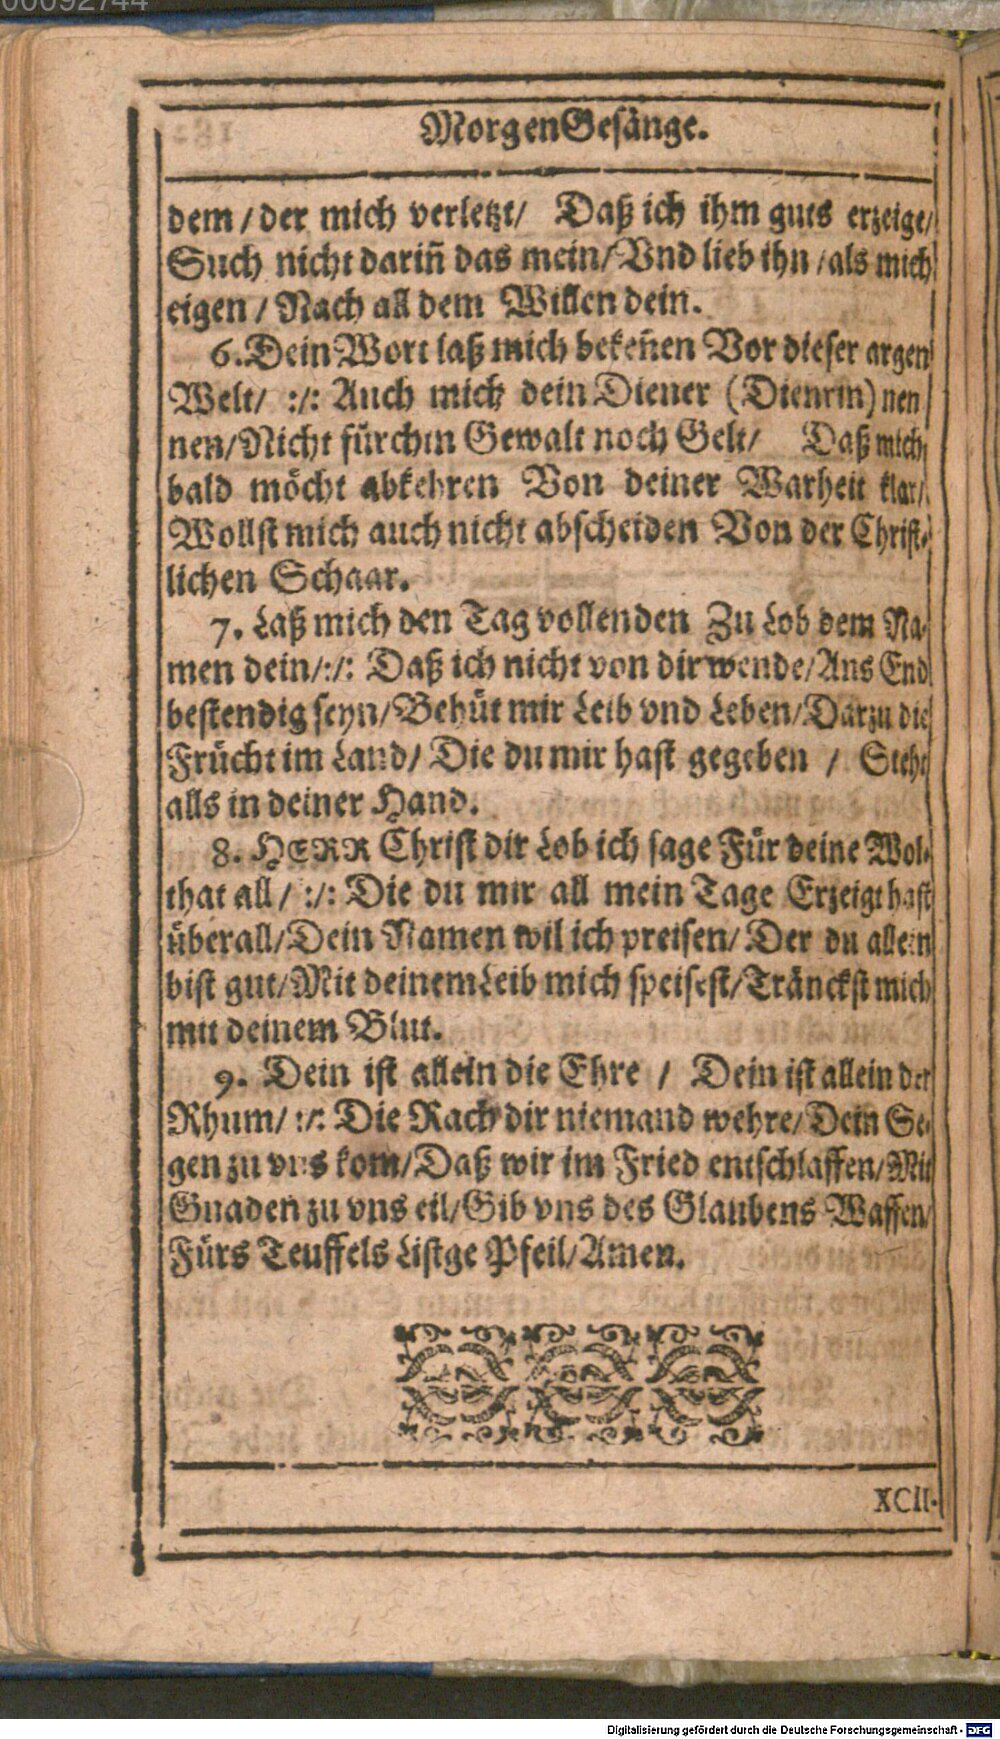 00092744
MorgenGesänge.
dem / der mich verletzt / Daß ich ihm guts erzeige /
Such nicht dariñ das mein / Vnd lieb ihn / als mich
eigen / Nach all dem Willen dein.
6. Dein Wort laß mich bekeñen Vor dieser argen
Welt / :/: Auch mich dein Diener (Dienrin) nen
nen / Nicht fürchtn Gewalt noch Gelt / Daß mich
bald möcht abkehren Von deiner Warheit klar /
Wollst mich auch nicht abscheiden Von der Christ-
lichen Schaar.
7. Laß mich den Tag vollenden Zu Lob dem Na-
men dein / :/: Daß ich nicht von dir wende / Ans End
bestendig seyn / Behüt mir Leib vnd Leben / Darzu die
Frücht im Land / Die du mir hast gegeben / Stehe
alls in deiner Hand.
8. HERR Christ dir Lob ich sage Für deine Wol-
that all / :/: Die du mir all mein Tage Erzeigt hast
überall / Dein Namen wil ich preisen / Der du allein
bist gut / Mit deinem Leib mich speisest / Tränckst mich
mit deinem Blut.
9. Dein ist allein die Ehre / Dein ist allein der
Rhum / :/: Die Rach dir niemand wehre / Dein Se-
gen zu vns kom / Daß wir im Fried entschlaffen / Mit
Gnaden zu vns eil / Gib vns des Glaubens Waffen /
Fürs Teuffels Listge Pfeil / Amen.
XCII.
Digitalisierung gefördert durch die Deutsche Forschungsgemeinschaft - DFG